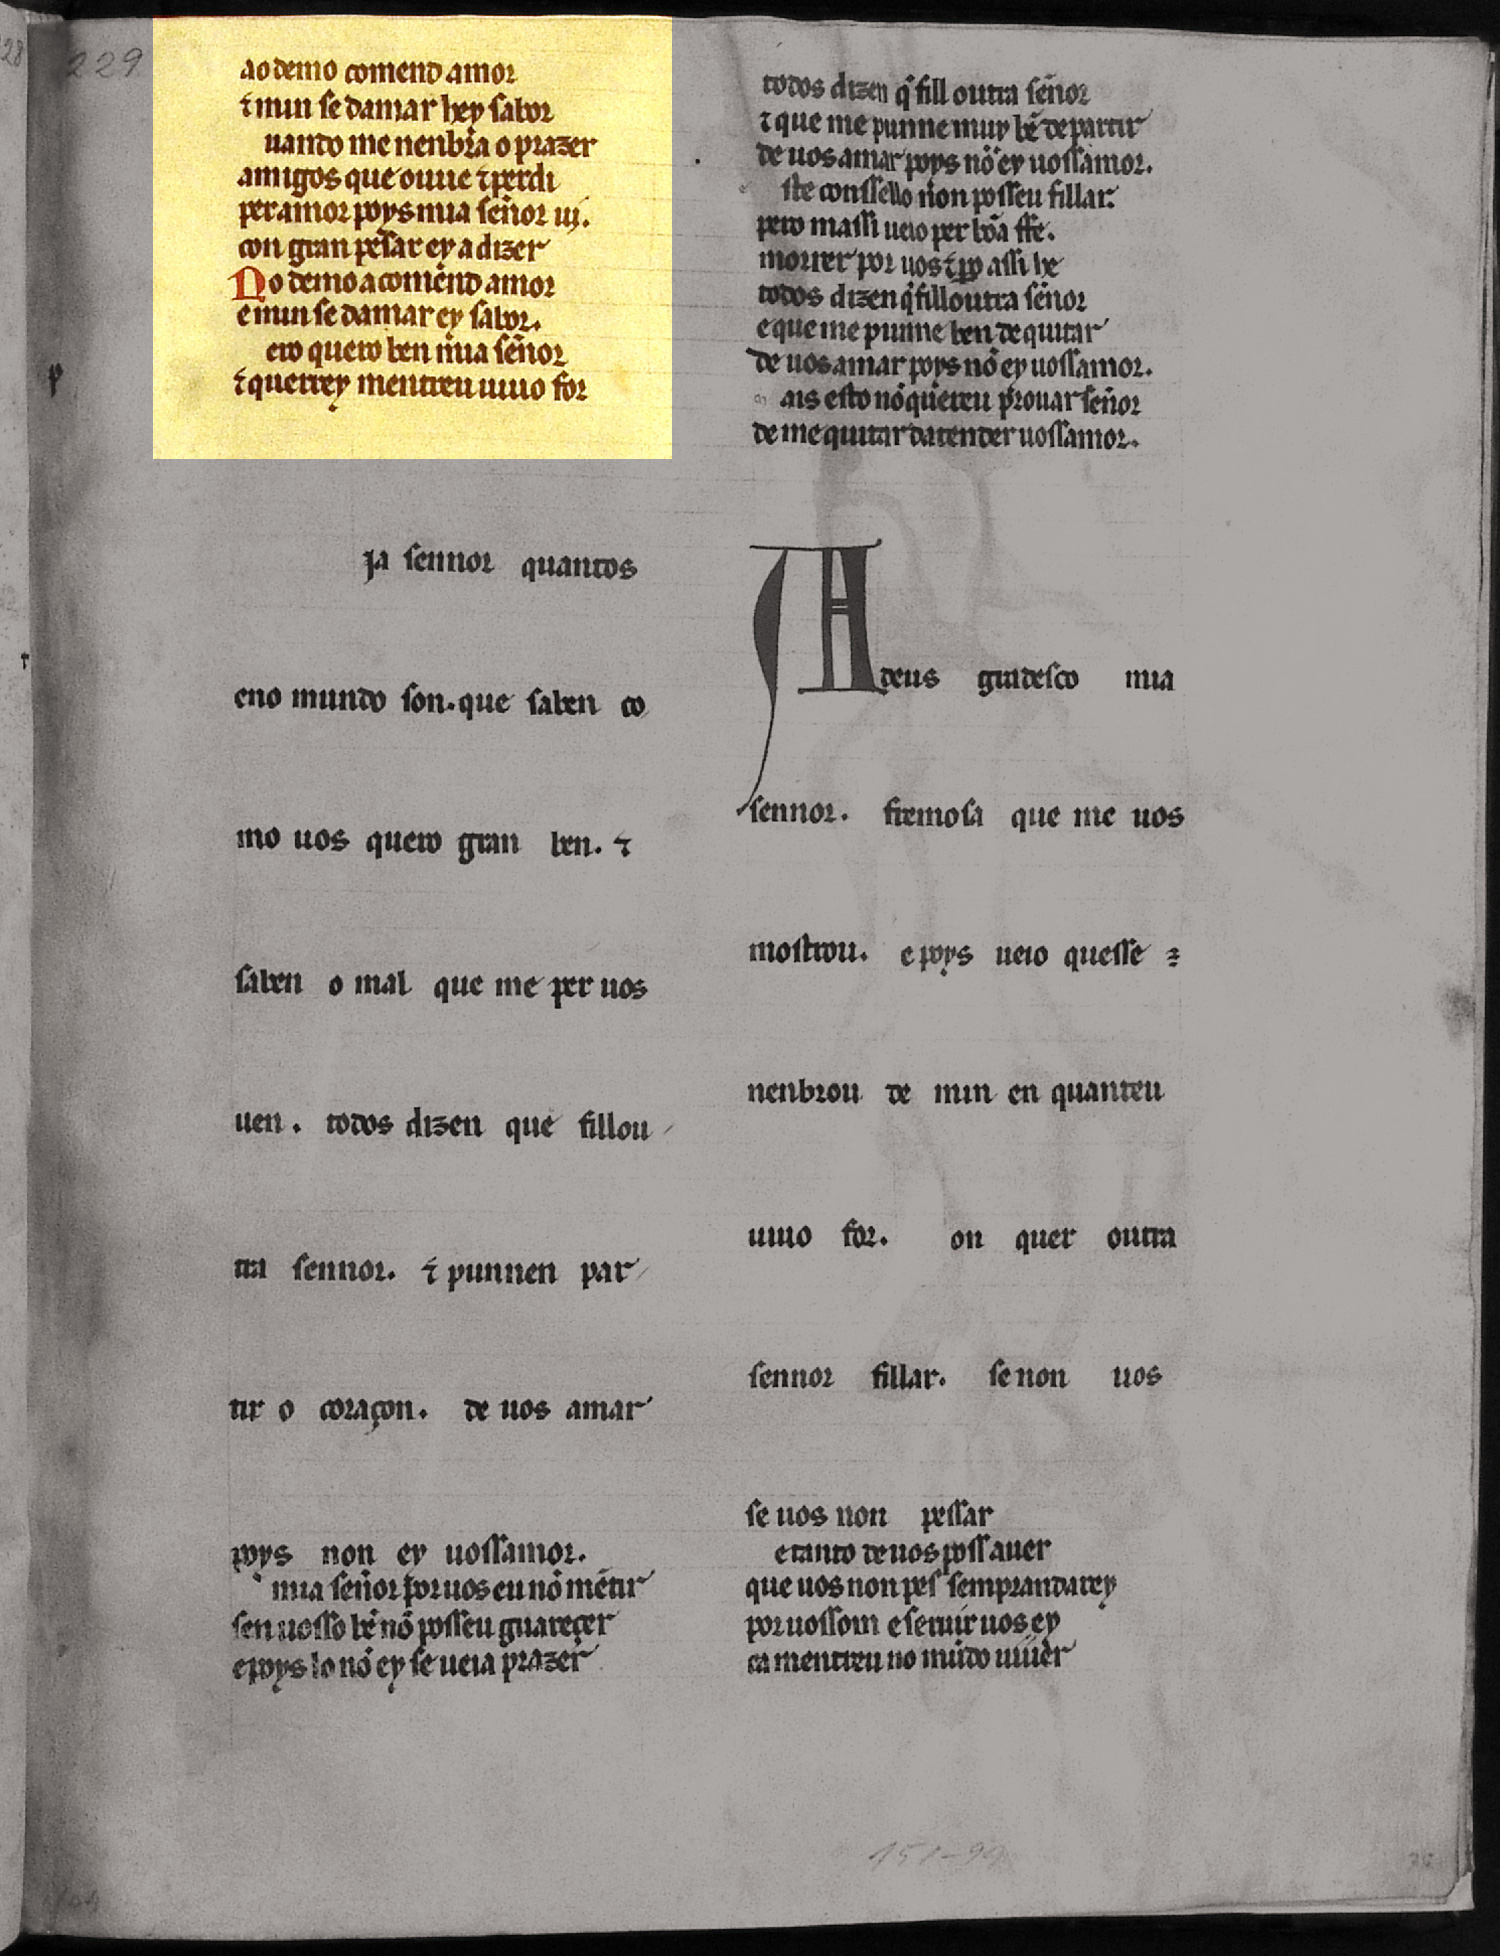 229
ao demo comend amor
⁊ mun se damar hey sabor
uando me nenbra o prazer
amigos que ouue ⁊ perdi
per amor poys mia señor ui.
con gran pesar ey a dizer
Ao demo acomẽnd amor
e mun se damar ey sabor.
ero quero ben mia señor
⁊ querrey mentreu uiuo for
ja sennor quantos
eno mundo son. que saben co
mo uos quero gran ben. ⁊
saben o mal que me per uos
uen. todos dizen que fillou
tra sennor. ⁊ punnen par
tir o coraçon. de uos amar
poys non ey uossamor.
mia señor por uos eu nõ mẽtir
sen uosso bẽ nõ posseu guareçer
e poys lo nõ ey se ueia prazer
todos dizen q̃ fill outra señor
⁊ que me punne muy bẽ de partir
de uos amar poys nõ ey uossamor.
ste conssello non posseu fillar.
pero massi ueio per bõa ffe.
morrer por uos ⁊ assi he
todos dizen q̃ fill outra señor
e que me punne ben de quitar
de uos amar poys nõ ey uossamor.
ais esto nõ quereu prouar señor
de me quitar datender uossamor.
A deus gradesco mia
sennor. fremosa que me uos
mostrou. e poys ueio quesse
nenbrou de min en quanteu
uiuo for. on quer outra
sennor fillar. se non uos
se uos non pessar
e tanto de uos poss auer
que uos non pes sempr andarey
por uossom e seruir uos ey
ca mentreu no mũdo uiuer
151-99